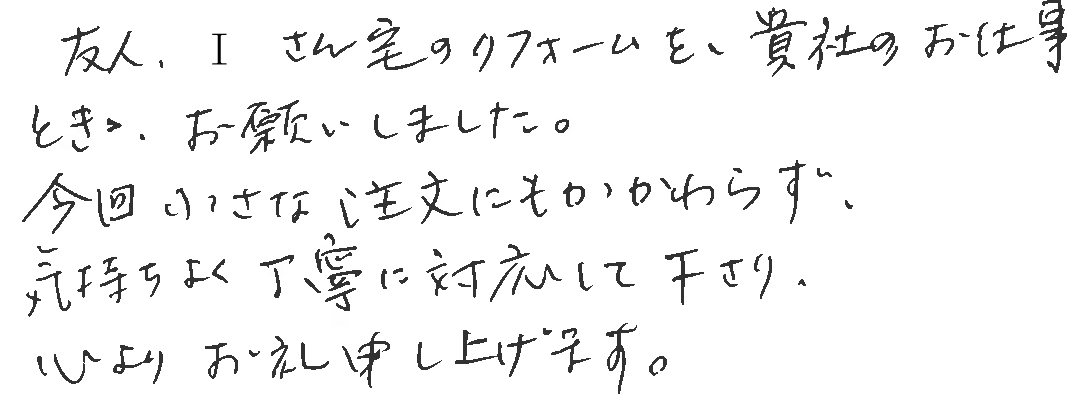 友人、I さん宅のリフォームを、貴社のお仕事
ときき、お願いしました。
今回小さな注文にもかかわらず、
気持ちよく丁寧に対応して下さり、
心よりお礼申し上げます。